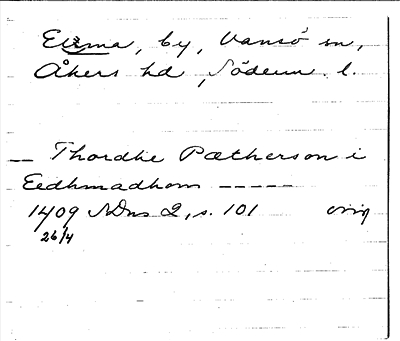 Edma, by, Vansö sn,
Åkers hd, Söderm. l.
— Thordhe Pætherson i
Eedhmadhom -----
1409 SDns 2, s. 101 orig
26/4